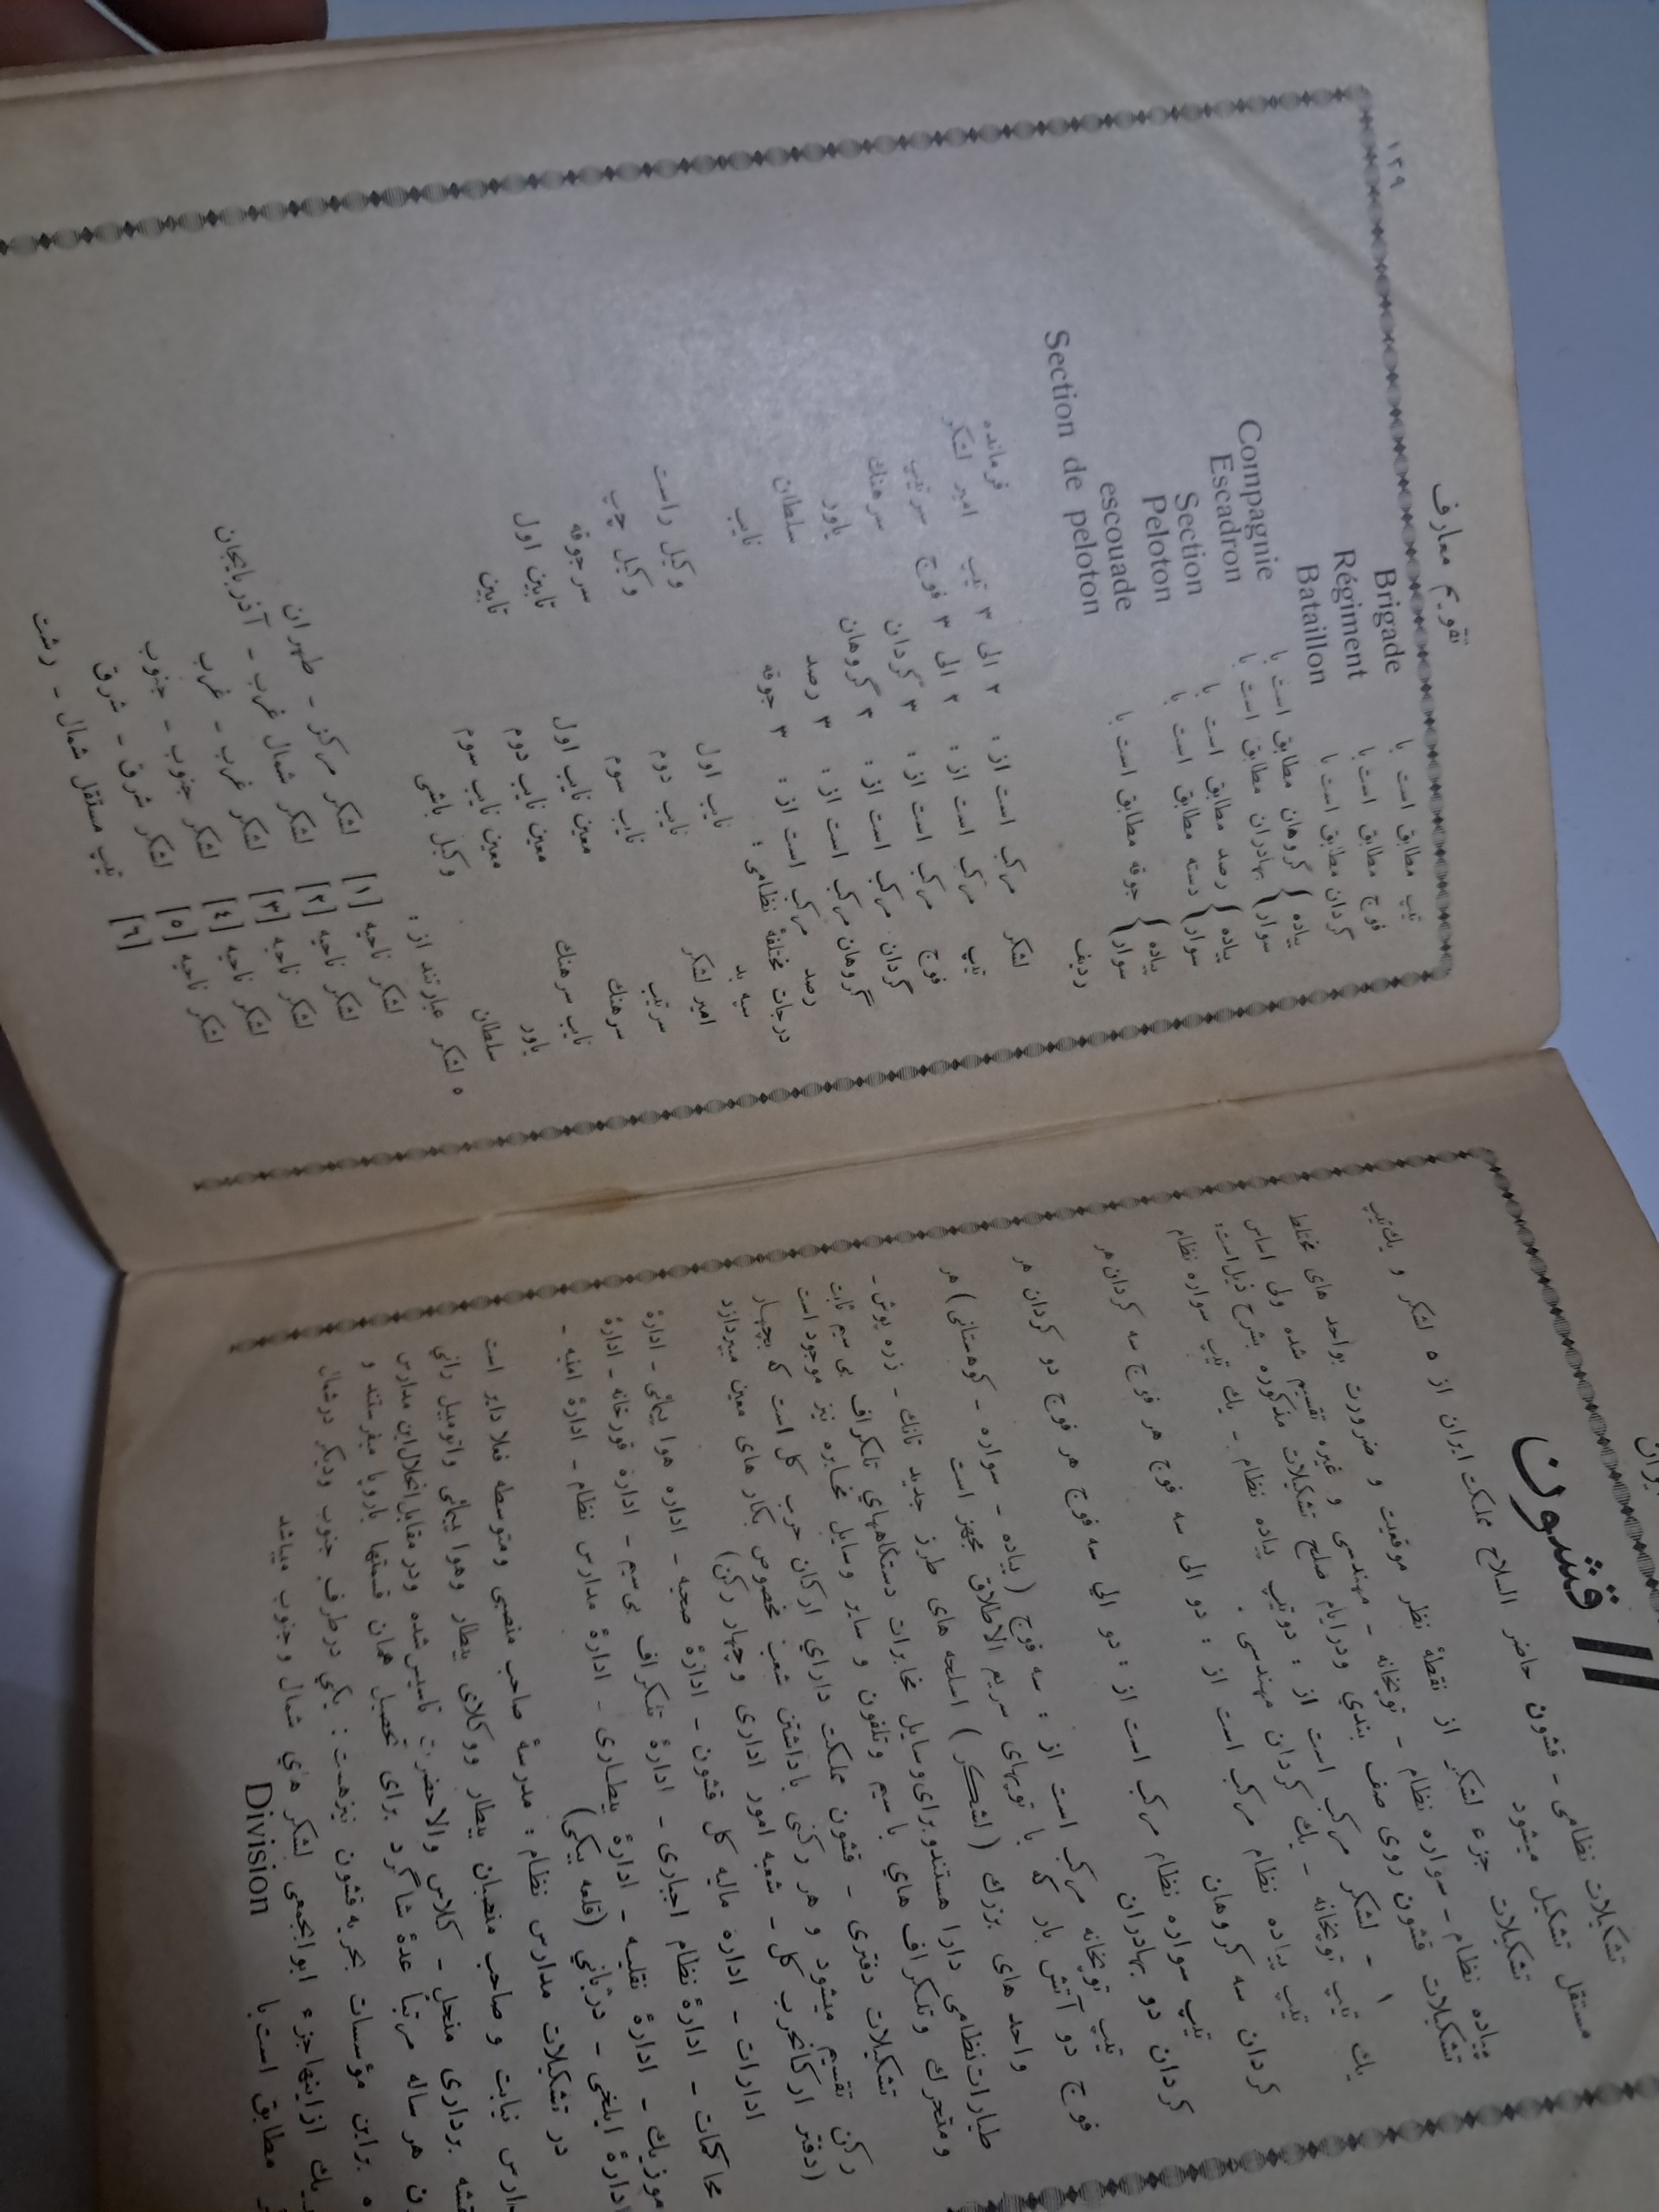 قشون
تشکیلات نظامی - قشون حاضر السلاح مملکت ایران از ۵ لشکر و یك تیپ
مستقل تشکیل میشود
تشکیلات جزء لشکر از نقطهٔ نظر موقعیت و ضرورت بواحد های مختلط
پیاده نظام - سواره نظام - توپخانه - مهندسی و غیره تقسیم شده ولی اساس
تشکیلات قشون روی صف بندی ودر ایام صلح تشکیلات مذکوره بشرح ذیل است:
۱ - لشکر مرکب است از : دو تیپ پیاده نظام - یك تیپ سواره نظام
یك تیپ توپخانه - یك گردان مهندسی .
تیپ پیاده نظام مرکب است از : دو الی سه فوج هر فوج سه گردان هر
گردان سه گروهان
تیپ سواره نظام مرکب است از : دو الی سه فوج هر فوج دو گردان هر
گردان دو بهادران
تیپ توپخانه مرکب است از : سه فوج (پیاده - سواره - کوهستانی) هر
فوج دو آتش بار که با توپهای سریع الاطلاق مجهز است
واحد های بزرك (لشکر) اسلحه های طرز جدید تانك - زره پوش -
طیارات نظامی دارا هستند و برای وسایل مخابرات دستگاههای تلگراف بی سیم ثابت
و متحرك و تلگراف های با سیم و تلفون و سایر وسایل مخابره نیز موجود است
تشکیلات دفتری - قشون مملکت دارای ارکان حرب کل است که بچهار
رکن تقسیم میشود و هر رکنی با داشتن شعب مخصوص بکار های معین میپردازد
(دفتر ارکانحرب کل - شعبه امور اداری و چهار رکن)
ادارات - ادارهٔ مالیه کل قشون - ادارهٔ صحیه - اداره هوا پیمائی - ادارهٔ
محاکمات - ادارهٔ نظام اجباری - ادارهٔ تلگراف بی سیم - ادارهٔ قورخانه - ادارهٔ
موزیك - ادارهٔ نقلیه - ادارهٔ بیطاری - ادارهٔ مدارس نظام - ادارهٔ امنیه -
ادارهٔ ایلخی - دژبانی (قلعه بیگی)
در تشکیلات مدارس نظام : مدرسهٔ صاحب منصبی ومتوسطه فعلا دایر است
نیابت و صاحب منصبان بیطار ووکلای بیطار وهوا پیمائی واتومبیل رانی
برداری منحل - کلاس والاحضرت تاسیس شده ودر مقابل انحلال این مدارس
هر ساله مرتبا عدهٔ شاگرد برای تحصیل همان قسمتها باروپا میفرستند و
براین مؤسسات بحریه قشون نیزهست : یکی درطرف جنوب ودیگر درشمال
یك ازاینها جزء ابوابجمعی لشکر های شمال وجنوب میباشد
مطابق است با Division
تقویم معارف
۱۲۹
تیپ مطابق است با Brigade
فوج مطابق است با Régiment
گردان مطابق است با Bataillon
پیاده } گروهان مطابق است با Compagnie
سوار } بهادران مطابق است با Escadron
پیاده } رصد مطابق است با Section
سوار } دسته مطابق است با Peloton
پیاده } جوقه مطابق است با escouade
سوار } Section de peloton
ردیف فرمانده
لشکر مرکب است از : ۲ الی ۳ تیپ امیر لشکر
تیپ مرکب است از : ۲ الی ۳ فوج سرتیپ
فوج مرکب است از : ۳ گردان سرهنك
گردان مرکب است از : ۳ گروهان یاور
گروهان مرکب است از : ۳ رصد سلطان
رصد مرکب است از : ۳ جوقه نایب
درجات مختلفهٔ نظامی :
سپه بد نایب اول وکیل راست
امیر لشکر نایب دوم وکیل چپ
سرتیپ نایب سوم سرجوقه
سرهنك معین نایب اول تابین اول
نایب سرهنك معین نایب دوم تابین
یاور معین نایب سوم
سلطان وکیل باشی
۵ لشکر عبارتند از :
لشکر ناحیه [۱] لشکر مرکز - طهران
لشکر ناحیه [۲] لشکر شمال غرب - آذربایجان
لشکر ناحیه [۳] لشکر غرب - غرب
لشکر ناحیه [٤] لشکر جنوب - جنوب
لشکر ناحیه [٥] لشکر شرق - شرق
[٦] تیپ مستقل شمال - رشت